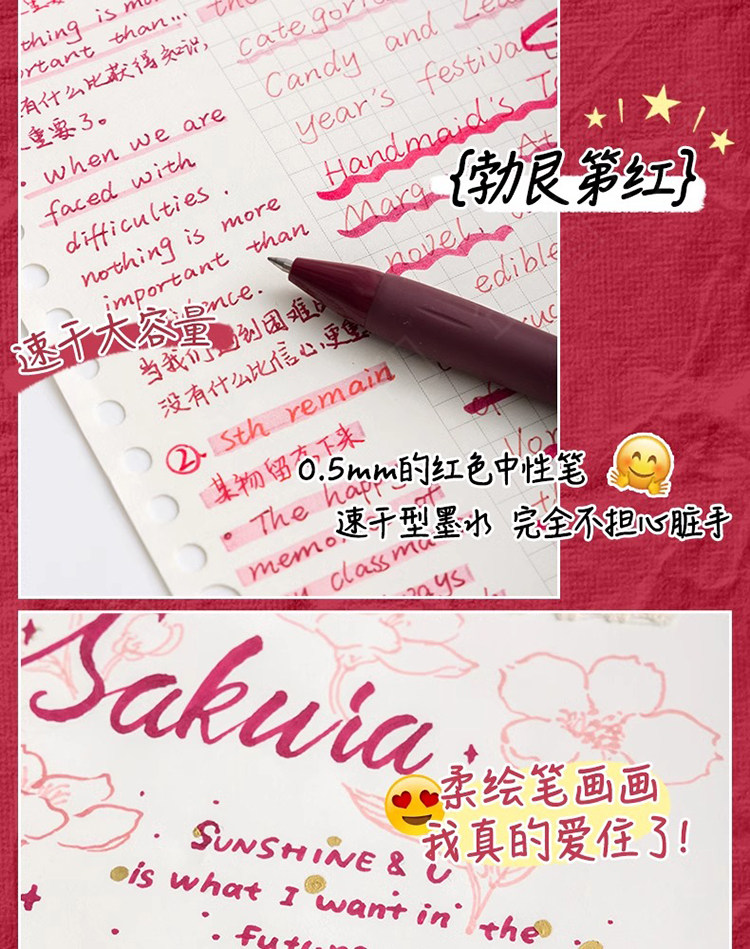 rtant than...
有什么比获得知识,
重要了。
when we are
faced with
difficulties.
nothing is more
important than
当我们遇到困难时
没有什么比信心更重
② sth remain
某物留存下来
The happy
memo
classma
ways
categor
Candy and
year's festival
Handmaid's
Marg
novel.
edible
{勃艮第红}
速干大容量
0.5mm的红色中性笔
速干型墨水 完全不担心脏手
Sakura
柔绘笔画画
我真的爱住了!
SUNSHINE & U
is what I want in the
future